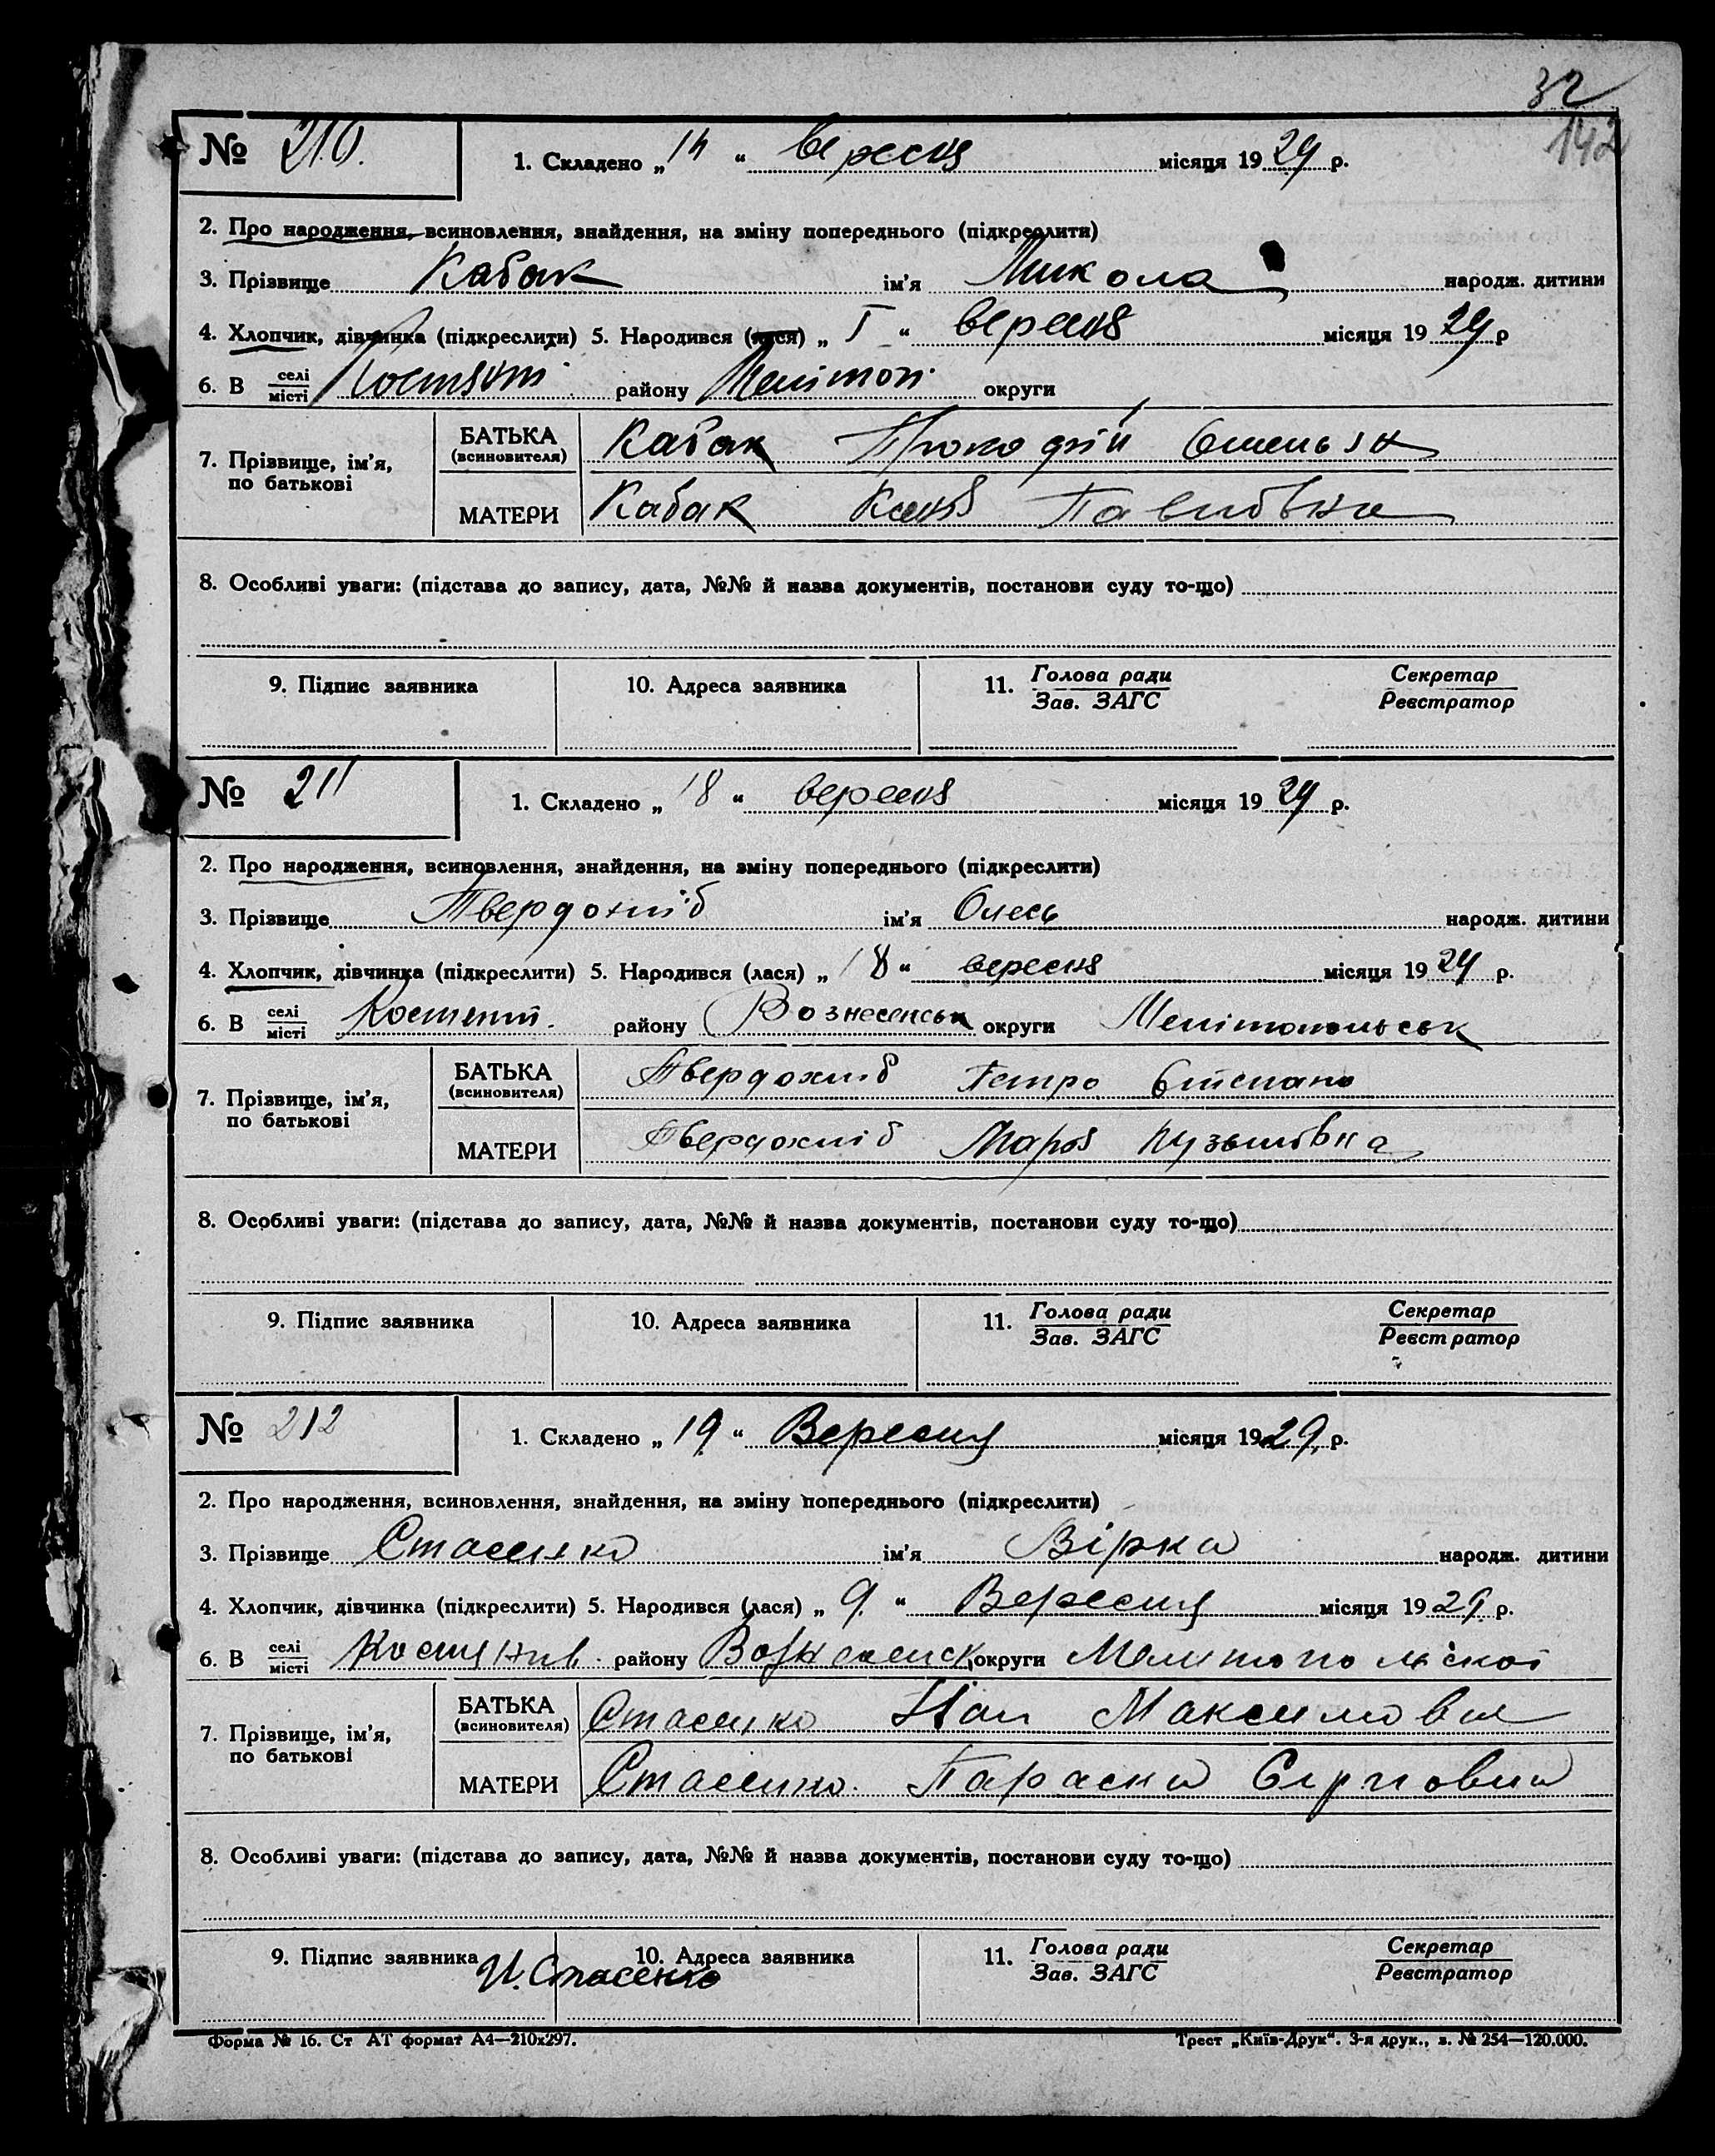 32
142
№ 210. 1. Складено „14“ вересня місяця 1929 р.
2. Про народження, всиновлення, знайдення, на зміну попереднього (підкреслити)
3. Прізвище Кабак ім'я Микола народж. дитини
4. Хлопчик, дівчинка (підкреслити) 5. Народився (лася) „1“ вересня місяця 1929 р
6. В селі місті району Мелітоп. округи
7. Прізвище, ім'я, по батькові
БАТЬКА (всиновителя) Кабак
МАТЕРИ Кабак
8. Особливі уваги: (підстава до запису, дата, №№ й назва документів, постанови суду то-що)
9. Підпис заявника 10. Адреса заявника 11. Голова ради Зав. ЗАГС Секретар Реєстратор
№ 211 1. Складено „18“ вересня місяця 1929 р.
2. Про народження, всиновлення, знайдення, на зміну попереднього (підкреслити)
3. Прізвище Твердохліб ім'я Олесь народж. дитини
4. Хлопчик, дівчинка (підкреслити) 5. Народився (лася) „18“ вересня місяця 1929 р.
6. В селі місті району Вознесенськ округи Мелітопольськ
7. Прізвище, ім'я, по батькові
БАТЬКА (всиновителя) Твердохліб Петро
МАТЕРИ Твердохліб Марія Кузьмівна
8. Особливі уваги: (підстава до запису, дата, №№ й назва документів, постанови суду то-що)
9. Підпис заявника 10. Адреса заявника 11. Голова ради Зав. ЗАГС Секретар Реєстратор
№ 212 1. Складено „19.“ Вересня місяця 1929. р.
2. Про народження, всиновлення, знайдення, на зміну попереднього (підкреслити)
3. Прізвище Стасенко ім'я Вірка народж. дитини
4. Хлопчик, дівчинка (підкреслити) 5. Народився (лася) „9.“ Вересня місяця 1929. р.
6. В селі місті району Вознесенск округи Мелитопольскої
7. Прізвище, ім'я, по батькові
БАТЬКА (всиновителя) Стасенко Максимович
МАТЕРИ Стасенко. Параска
8. Особливі уваги: (підстава до запису, дата, №№ й назва документів, постанови суду то-що)
9. Підпис заявника 10. Адреса заявника 11. Голова ради Зав. ЗАГС Секретар Реєстратор
И. Стасенко
Форма № 16. Ст АТ формат А4—210х297. Трест „Київ-Друк“. 3-я друк., з. № 254—120.000.